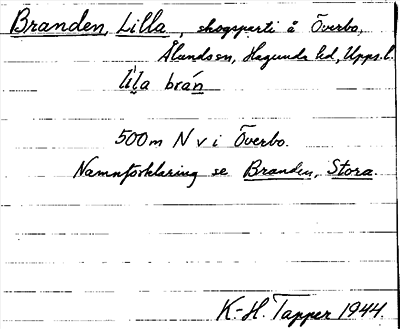 Branden, Lilla, skogsparti å Överbo,
Ålunds sn, Hagunda hd, Upps. l.
lil̯a brán
500 m N v i Överbo.
Namnförklaring se Branden, Stora.
K-H. Tapper 1944.